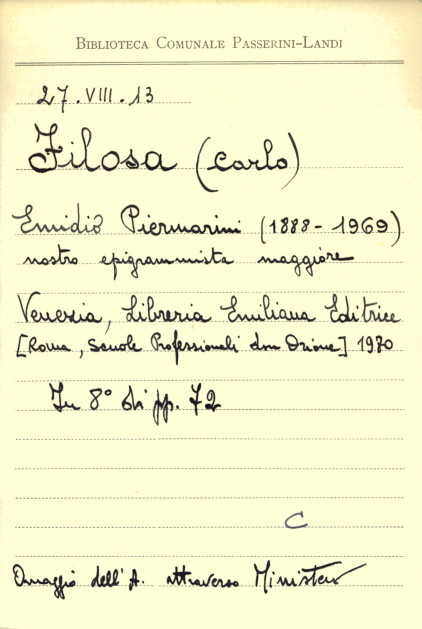 BIBLIOTECA COMUNALE PASSERINI-LANDI
27.VIII.13
Filosa (Carlo)
Emidio Piermarini (1888-1969)
nostro epigrammista maggiore
Venezia, Libreria Emiliana Editrice
[Roma, Scuole Professionali don Orione] 1970
In 8° di pp. 72
C
Omaggio dell'A. attraverso Minister